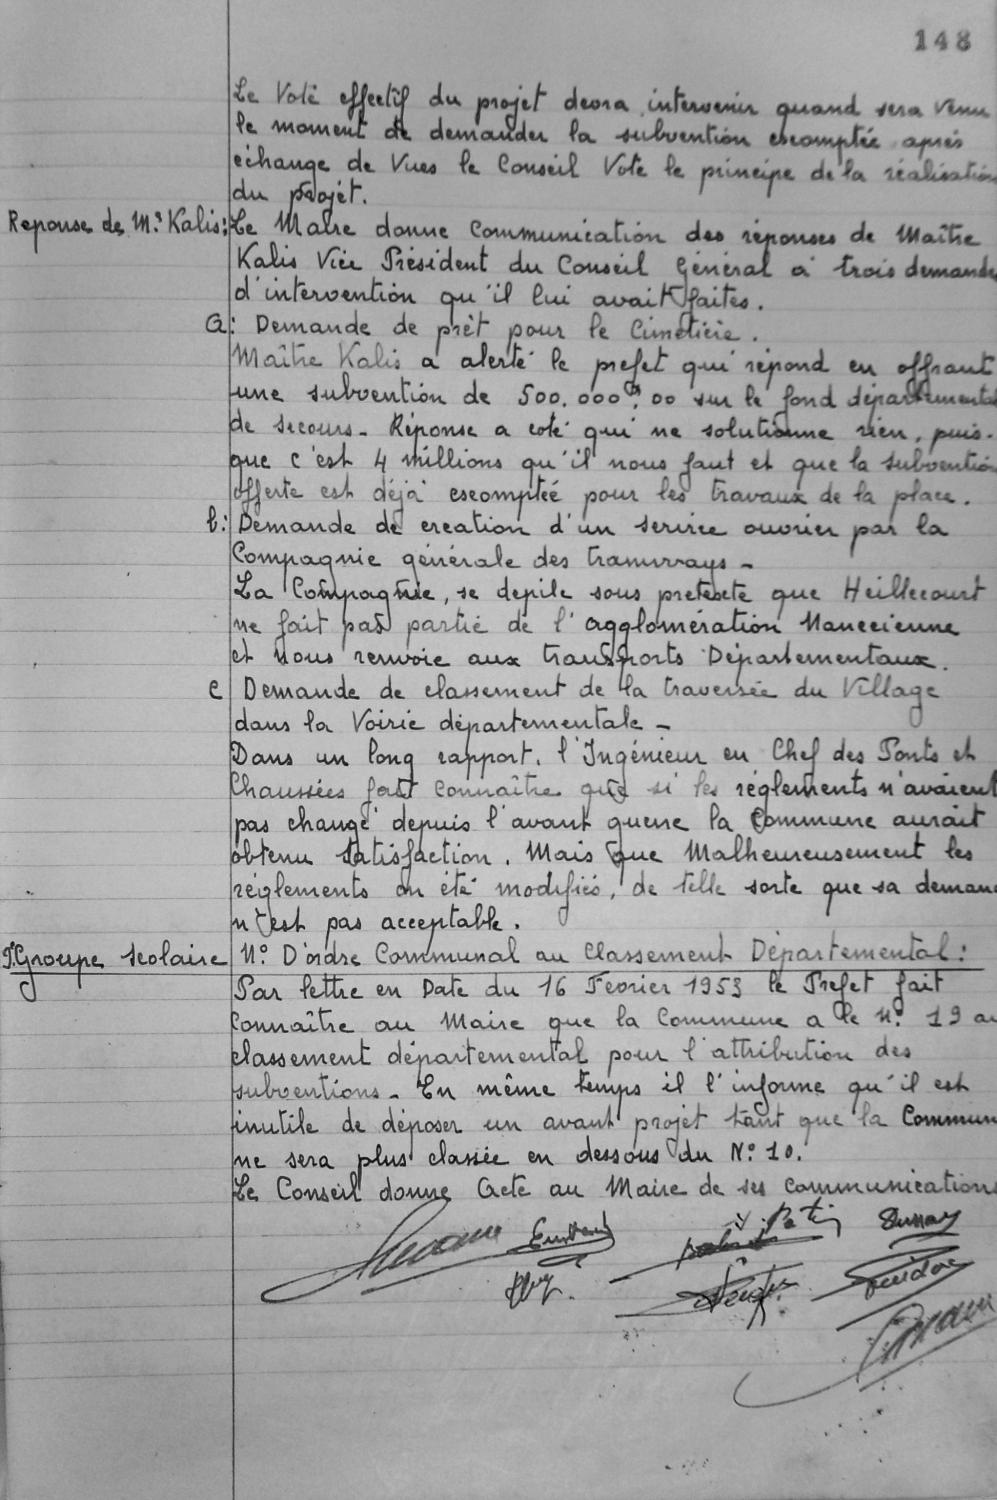 148
Le Vote effectif du projet devra intervenir quand sera venu
le moment de demander la subvention escomptée après
échange de Vues le Conseil Vote le principe de la réalisation
du projet.
Reponse de Me Kalis: Le Maire donne Communication des réponses de Maître
Kalis Vice Président du Conseil Général à trois demandes
d'intervention qu'il lui avait faites.
a: Demande de prêt pour le Cimetière.
Maître Kalis a alerté le prefet qui répond en offrant
une subvention de 500.000F,00 sur le fond départemental
de secours. Réponse a coté qui ne solutionne rien, puis-
que c'est 4 millions qu'il nous faut et que la subvention
offerte est déjà escomptée pour les travaux de la place.
b: Demande de creation d'un service ouvrier par la
Compagnie générale des tramways -
La Compagnie, se defile sous pretexte que Heillecourt
ne fait pas partie de l'agglomération Nanceienne
et nous renvoie aux transports Départementaux.
c Demande de classement de la traversée du Village
dans la Voirie départementale -
Dans un long rapport, l'Ingénieur en Chef des Ponts et
Chaussées fait connaître que si les réglements n'avaient
pas changé depuis l'avant guerre la Commune aurait
obtenu satisfaction. Mais que Malheureusement les
réglements on été modifiés, de telle sorte que sa demande
n'est pas acceptable.
Groupe scolaire N° D'ordre Communal au Classement Départemental:
Par lettre en Date du 16 Fevrier 1953 le Prefet fait
connaître au Maire que la Commune a le N° 19 au
classement départemental pour l'attribution des
subventions. En même temps il l'informe qu'il est
inutile de déposer un avant projet tant que la Commune
ne sera plus classée en dessous du N° 10.
Le Conseil donne Acte au Maire de ses communications